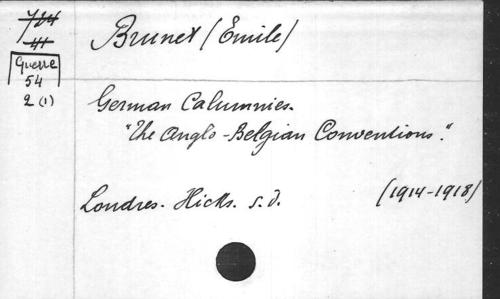 Brunet (Emile)
Guerre
54
2 (1)
German Calumnies.
"The Anglo-Belgian Conventions."
Londres. Hicks. s.d.
(1914-1918)